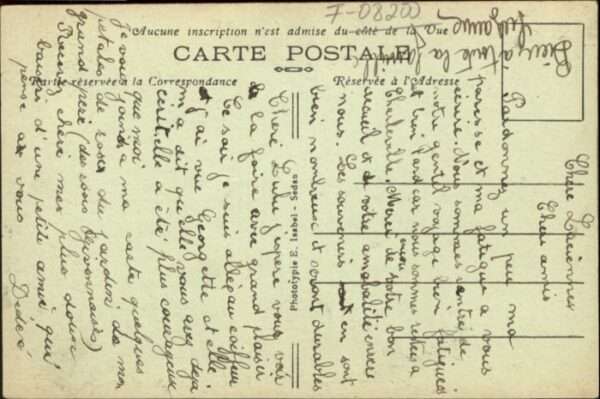 F-08200
Aucune inscription n'est admise du côté de la vue
CARTE POSTALE
Partie réservée à la Correspondance
Réservée à l'Adresse
Photolypie E. Isabel. Sedan
Chère Lucienne
Cher amis
Pardonnez un peu ma
paresse et ma fatigue a vous
écrire. Nous sommes rentré de
notre gentil voyage bien fatigués
et bien tard car nous sommes restés a
Charleville. Merci encore de votre bon
accueil et de votre amabilité envers
nous. Les souvenirs en sont
bien nombreux et seront durables
Chère Lulu j'espère vous voir
a la foire avec grand plaisir
Ce soir je suis allé au coiffeur
et j'ai vue Georgette et elle
m'a dit qu'elle vous avez déjà
écrit, elle a été plus courageuse
que moi
Je vous joind a ma carte quelques
pétales de roses du jardin de mon
grand père (des roses Givonnaises)
Recevez chère mes plus doux
baisers d'une petite amie qui
pense a vous
Désiré
Bien a toute la famille
Suzanne